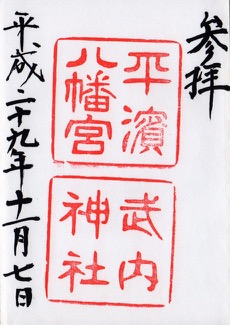 参拝
平濱
八幡宮
武内
神社
平成二十九年十一月七日